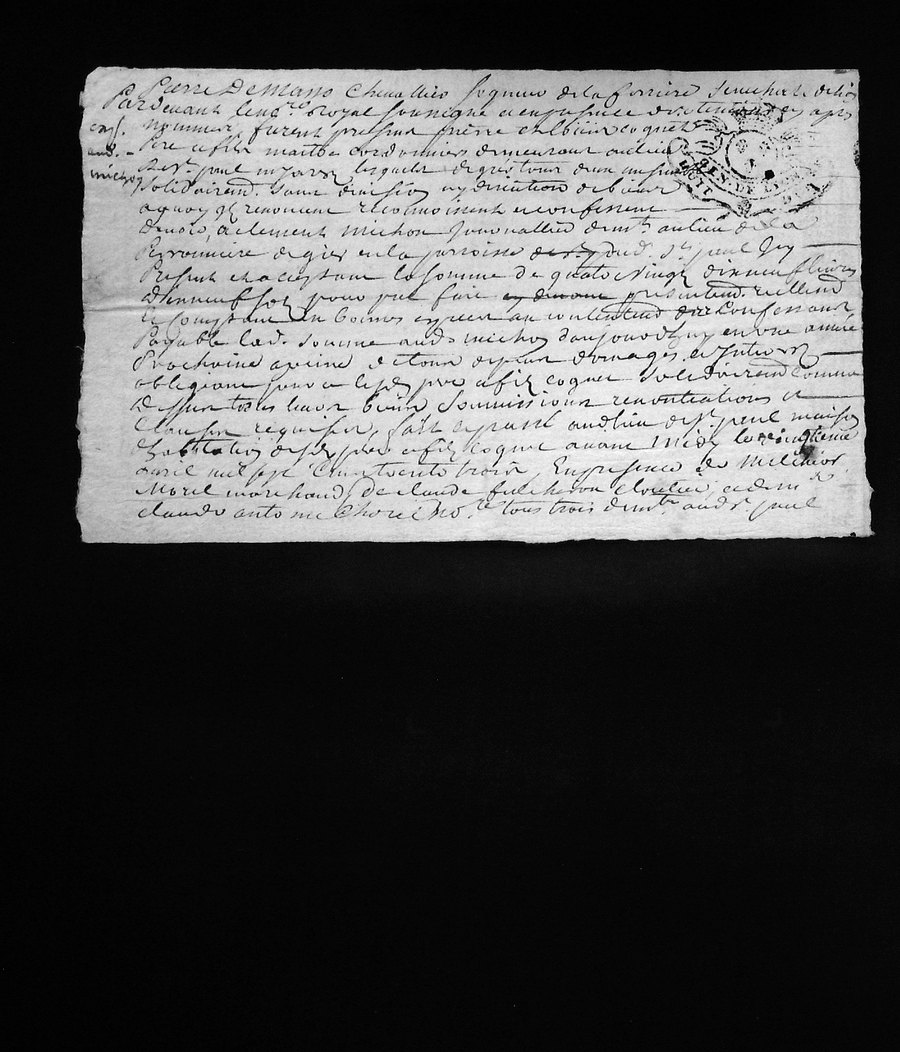 Pierre Demasso Chevallier Seigneur de la ferriere Senechal de Lion
Pardevant le no.re Royal soussigne et en presence des temoins cy apres
nommes furent presens pierre et alboin coquet
pere et fils maitres cordonniers demeurant au lieu
de st. paul lesquels de gre tour deux
solidairemt. sans division ny division de biens
a quoy ils renoncent reconnoissent et confessent
devoir a clement michon Journallier demt. au lieu de la
Perronniere de gier en la paroisse dud. st. paul Icy
Present et acceptant la somme de quatre vingt dix neuf livres
Dix neuf sols pour pret fait presentemt. reellemt.
et comptant en bonnes especes au contentemt. des confessant
Payable lad. somme aud. michon d'aujourdhuy en une année
Prochaine a peine de tous depens domages et Interests
obligeant pour ce lesd. pere et fils coquet solidairemt. comme
Dessus tous leurs biens soumissions renontiations et
clauses requises, fait et passé audt lieu de st. paul maison
d'habitation desd. pere et fils coquet avant midy le vingtieme
avril mil sept cent trente trois, En presence de Melchior
Morel marchand, de claude cloutier, et de mr.
claude antoine chorel no.re tous trois demts. aud. st. paul
obl.
aud.
michon
GEN. DE LYON